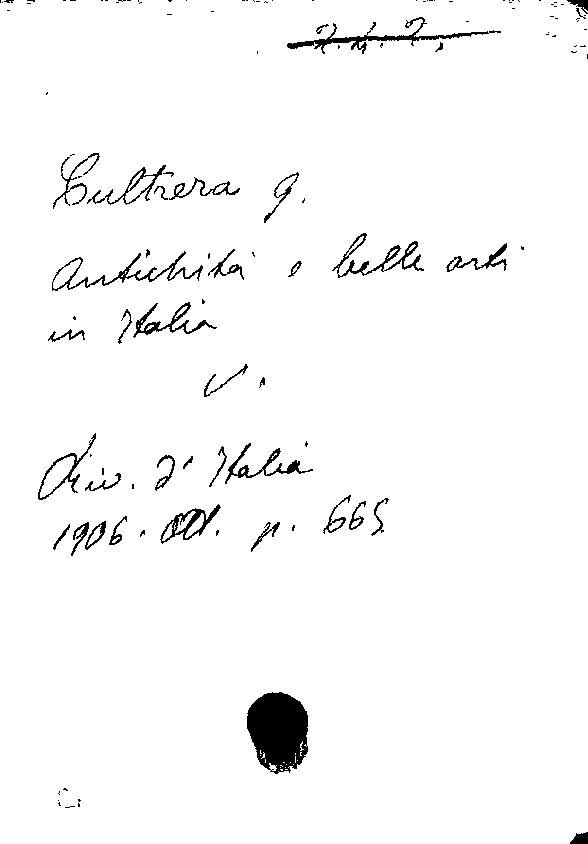 Cultrera G.
Antichità e belle arti
in Italia
v.
Riv. d'Italia
1906. Ott. p. 665